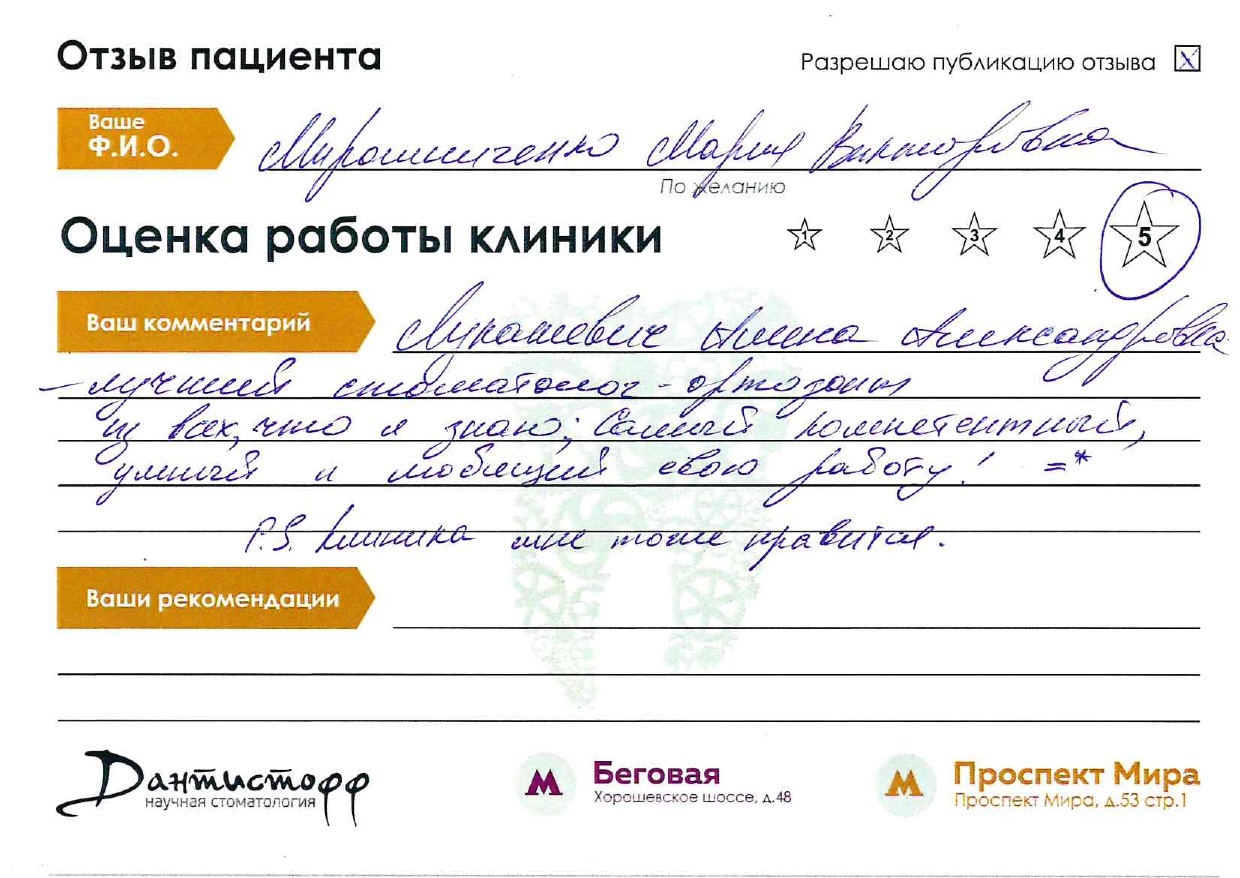 Отзыв пациента
Разрешаю публикацию отзыва X
Ваше
Ф.И.О.
Мирошниченко Мария Викторовна
По желанию
Оценка работы клиники
1 2 3 4 5
Ваш комментарий
Лукашевич Алена Александровна
– лучший стоматолог - ортодонт
из всех, что я знаю; Самый компетентный,
умный и любящий свою работу! =*
P.S. Клиника мне тоже нравится.
Ваши рекомендации
Дантистофф
научная стоматология
М Беговая
Хорошевское шоссе, д.48
М Проспект Мира
Проспект Мира, д.53 стр.1